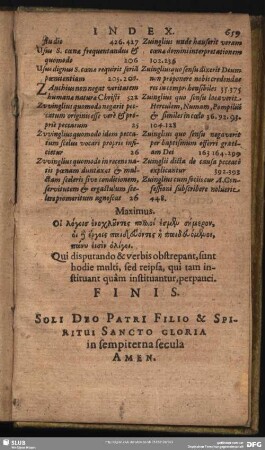 INDEX. 659
studio 426.427
Usus S. cœna frequentandus &
quomodo 206
Usus dignus S. cœna requirit seriā
pœnitentiam 203.206.
Zanthius non negat veritatem
humana natura Christi 328
Zvvinglius quomodo negarit pec-
catum originis esse verè & pro-
priè peccatum 25
Zvvinglius quomodo idem pecca-
tum stylus vocari propriè insti-
tietur 26
Zvvinglius quomodo in recenti-
nis panam
servientem & ergastulum
26
Zuinglius unde hauserit veram
cœna domini interpretationem
102.236
Zuinglius quo sensu dixerit Deum
non proponere nobis credendas
res incomprehensibiles 35 375
Zuinglius quo sensu locaverit
Herculem, Numam, Pompilios
& similes in cœlo 38.92.95.
104.128
Zuinglius quo sensu negaverit
per baptismum afferri grati-
am Dei 163 164.199
Zuinglij dicta de causa peccati
explicantur 392.393
Zuinglius cum socijs cur A. Con-
fessioni subscribere noluerit.
448.
Maximus.
Οἱ λόγοις ἐνοχλοῦντες πολλοί ἐσμὲν σήμερον,
οἱ ἢ ἔργοις παιδεύοντες ἢ παιδευόμενοι,
πάνυ εἰσὶν ὀλίγοι.
Qui disputando & verbis obstrepant, sunt
hodie multi, sed reipsa, qui tam in-
stituant quàm instituantur, perpauci.
FINIS.
SOLI DEO PATRI FILIO & SPI-
RITUI SANCTO GLORIA
in sempiterna secula
AMEN.
SLUB
DFG